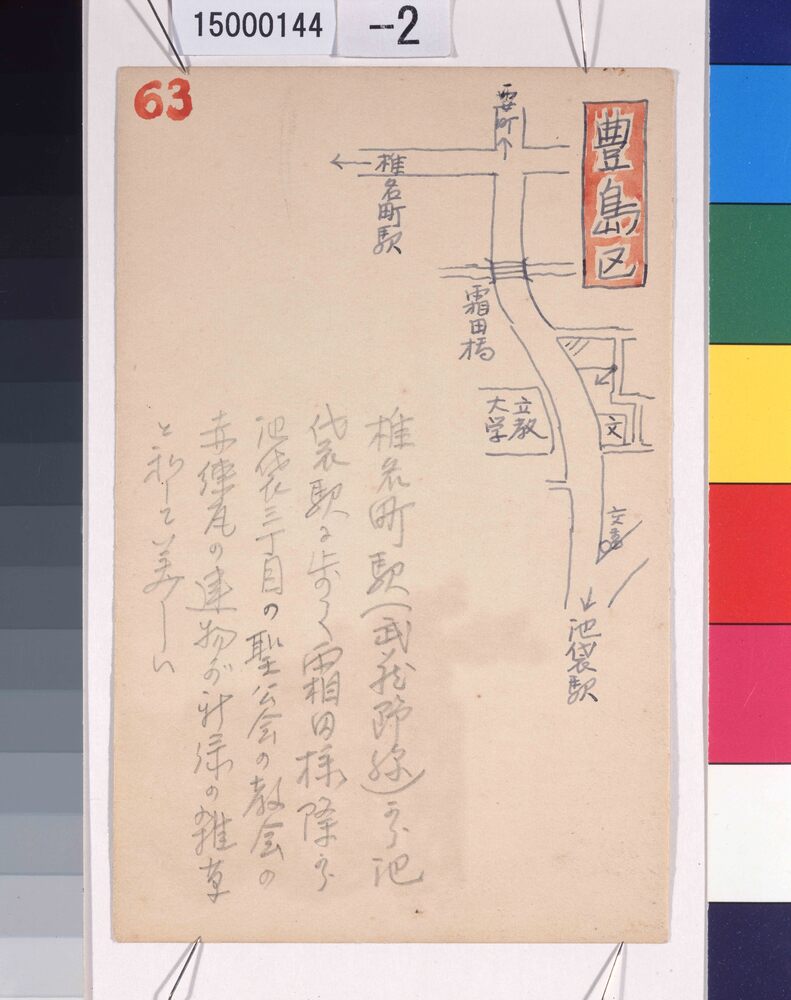 15000144
-2
63
豊島区
要町
椎名町駅
霜田橋
立教
大学
文
池袋駅
椎名町駅(武蔵野線)から池
袋駅に歩く霜田橋際から
池袋三丁目の聖公会の教会の
赤煉瓦の建物が新緑の雑草
と和して美しい